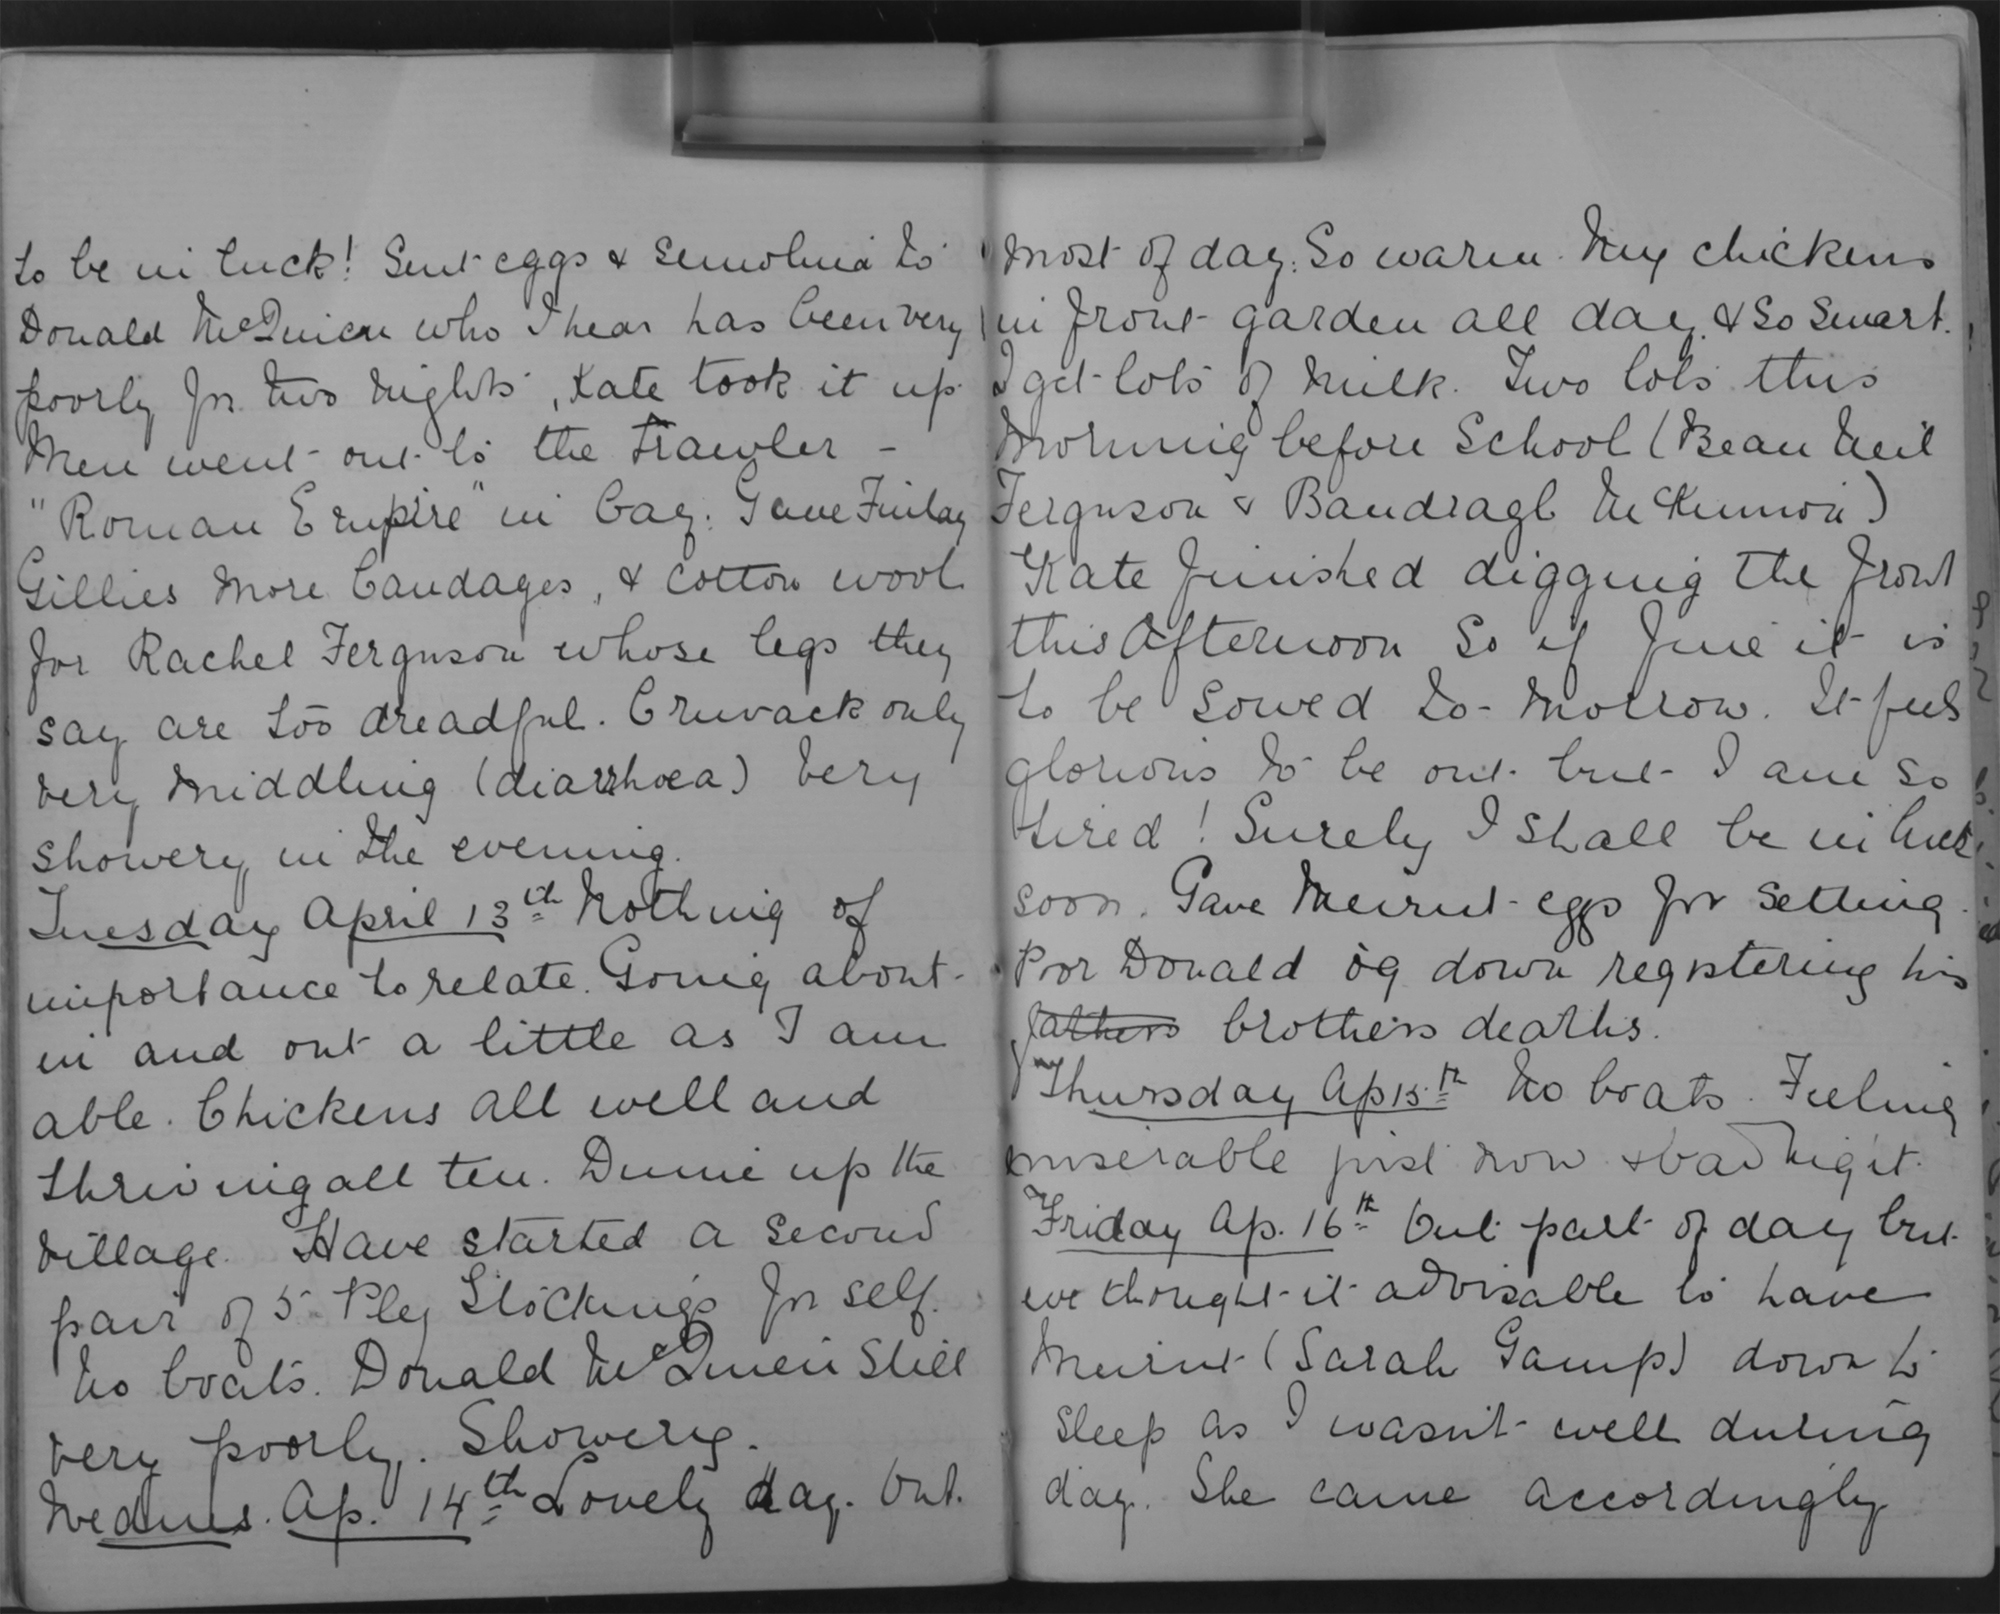 to be in luck! Sent eggs & semolina to
Donald McQuien who I hear has been very
poorly for two nights, Kate took it up
Men went out to the trawler -
"Roman Empire" in bay. Gave Finlay
Gillies more bandages, & cotton wool
for Rachel Ferguson whose legs they
say are too dreadful. Cruvack only
very middling (diarrhoea) Very
showery in the evening.
Tuesday April 13th Nothing of
importance to relate. Going about
in and out a little as I am
able. Chickens all well and
thriving all ten. Dunie up the
village. Have started a second
pair of 5 Ply Stockings for self.
No boats. Donald McQueen Still
very poorly. Showery.
Wednes. Ap. 14th Lovely day. Out
most of day. So warm. My chickens
in front garden all day & So Smart.
I get lots of milk. Two lots this
morning before School (Bean Neil
Ferguson & Bandragh McKinnon)
Kate finished digging the front
this afternoon So if fine it is
to be sowed to-morrow. It feels
glorious to be out but I am so
tired! Surely I shall be in luck
soon. Gave Meirut eggs for setting.
Poor Donald òg down registering his
fathers brothers deaths.
Thursday Ap 15th No boats. Feeling
miserable just now & bad night.
Friday Ap. 16th Out part of day but
we thought it advisable to have
Meirut (Sarah Gamp) down to
sleep as I wasn't well during
day. She came accordingly